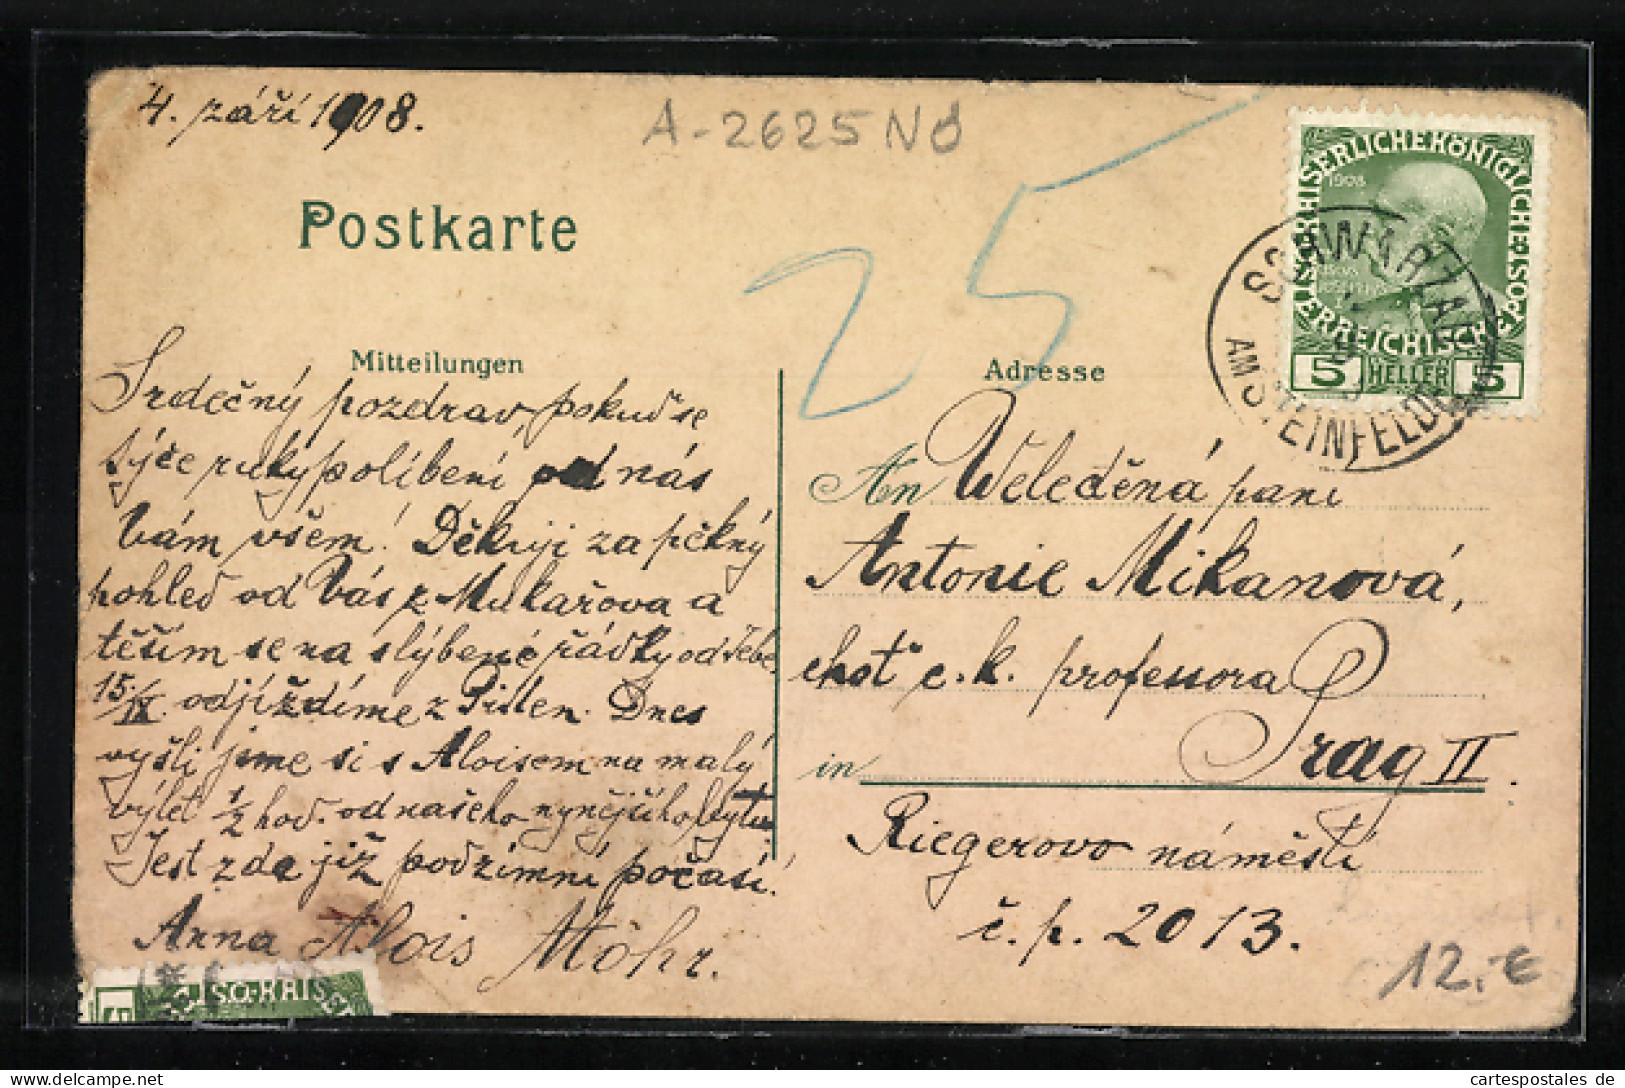 4. září 1908.
A-2625 NÖ
Postkarte
25
ÖSTERREICHISCHE POST KAISERLICHE KÖNIGLICHE
1908
5 HELLER 5
SCHWARZAU
AM STEINFELDE
Mitteilungen
Adresse
Srdečný pozdrav, pokuď se
týče ruky políbení od nás
Vám všem! Děkuji za pěkný
pohled od Vás z Mukařova a
těším se na slýbené řádky od Tebe.
15./IX. odjíždíme z Pitten. Dnes
vyšli jsme si s Aloisem na malý
výlet 1/2 hod. od našeho nynějšího bytu.
Jest zde již podzimní počasí.
Anna Alois Möhr.
An Weleděná paní
Antonie Mikanová,
choť c. k. professora
in Prag II.
Riegerovo náměstí
č. p. 2013.
12.-€
cartespostales de